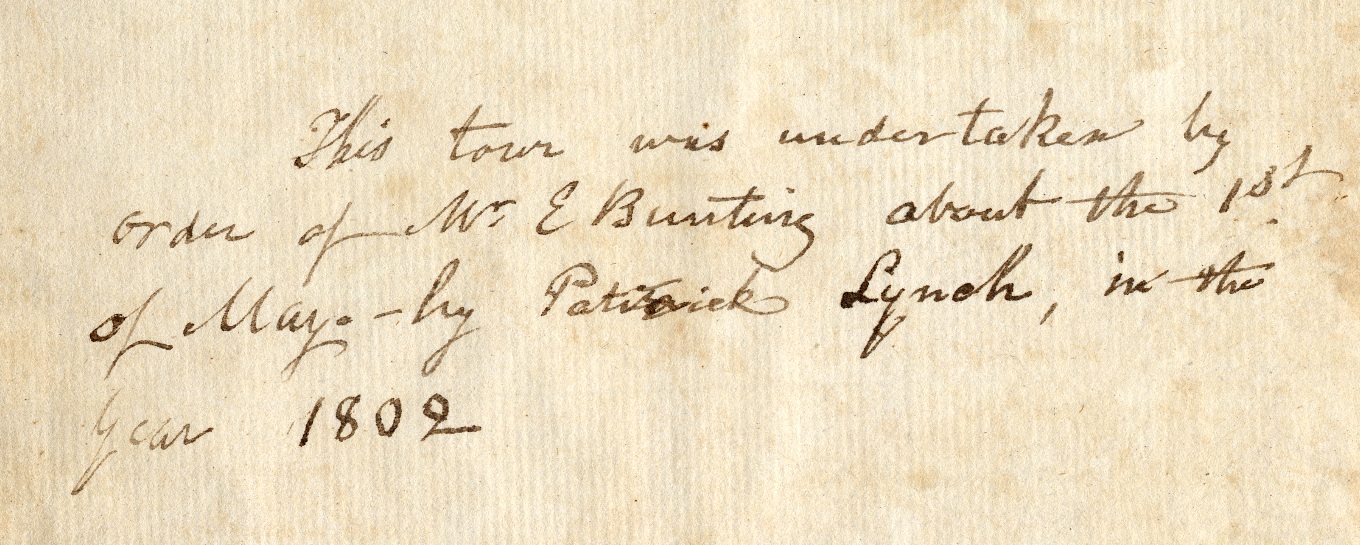 This tour was undertaken by
order of Mr E Bunting about the 1st
of May. - by Patrick Lynch, in the
year 1802